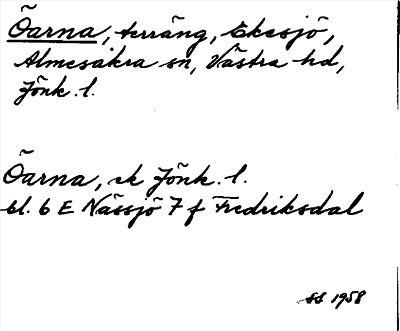 Öarna, terräng, Ekesjö,
Almesåkra sn, Västra hd,
Jönk. l.
Öarna, ek Jönk. l.
bl. 6 E Nässjö 7 f Fredriksdal
SS 1958